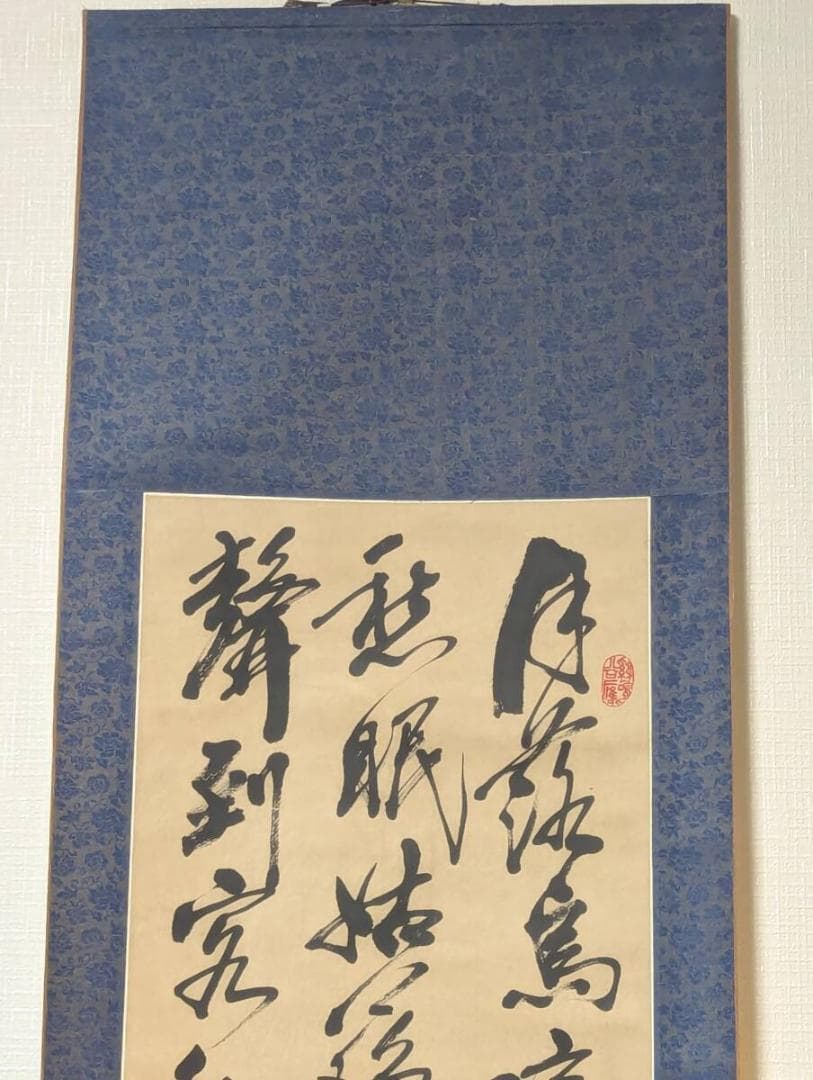 月落烏
愁眠姑蘇
聲到客